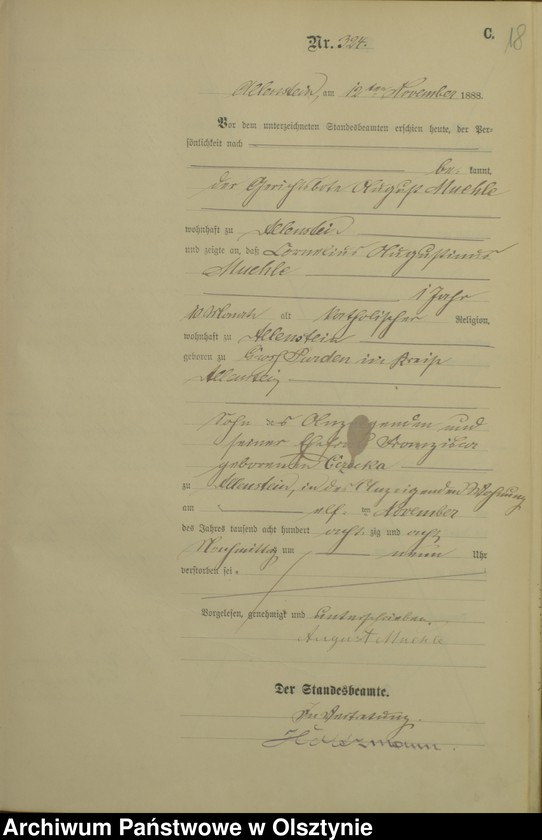 C.
18
Nr. 324.
Allenstein, am 12ten November 1888.
Vor dem unterzeichneten Standesbeamten erschien heute, der Per-
sönlichkeit nach
be- kannt,
der Gerichtsbote August Muehle
wohnhaft zu Allenstein
und zeigte an, daß Cornelius Augustinus
Muehle
1 Jahr
10 Monate alt katholischer Religion,
wohnhaft zu Allenstein
geboren zu Groß Purden im Kreise
Allenstein
Sohn des Anzeigenden und
seiner Ehefrau Franziska
geborenen
zu Allenstein, in des Anzeigenden Wohnung
am elf ten November
des Jahres tausend acht hundert acht zig und acht
Nachmittags um neun Uhr
verstorben sei.
Vorgelesen, genehmigt und unterschrieben.
August Muehle
Der Standesbeamte.
In Vertretung.
Archiwum Państwowe w Olsztynie